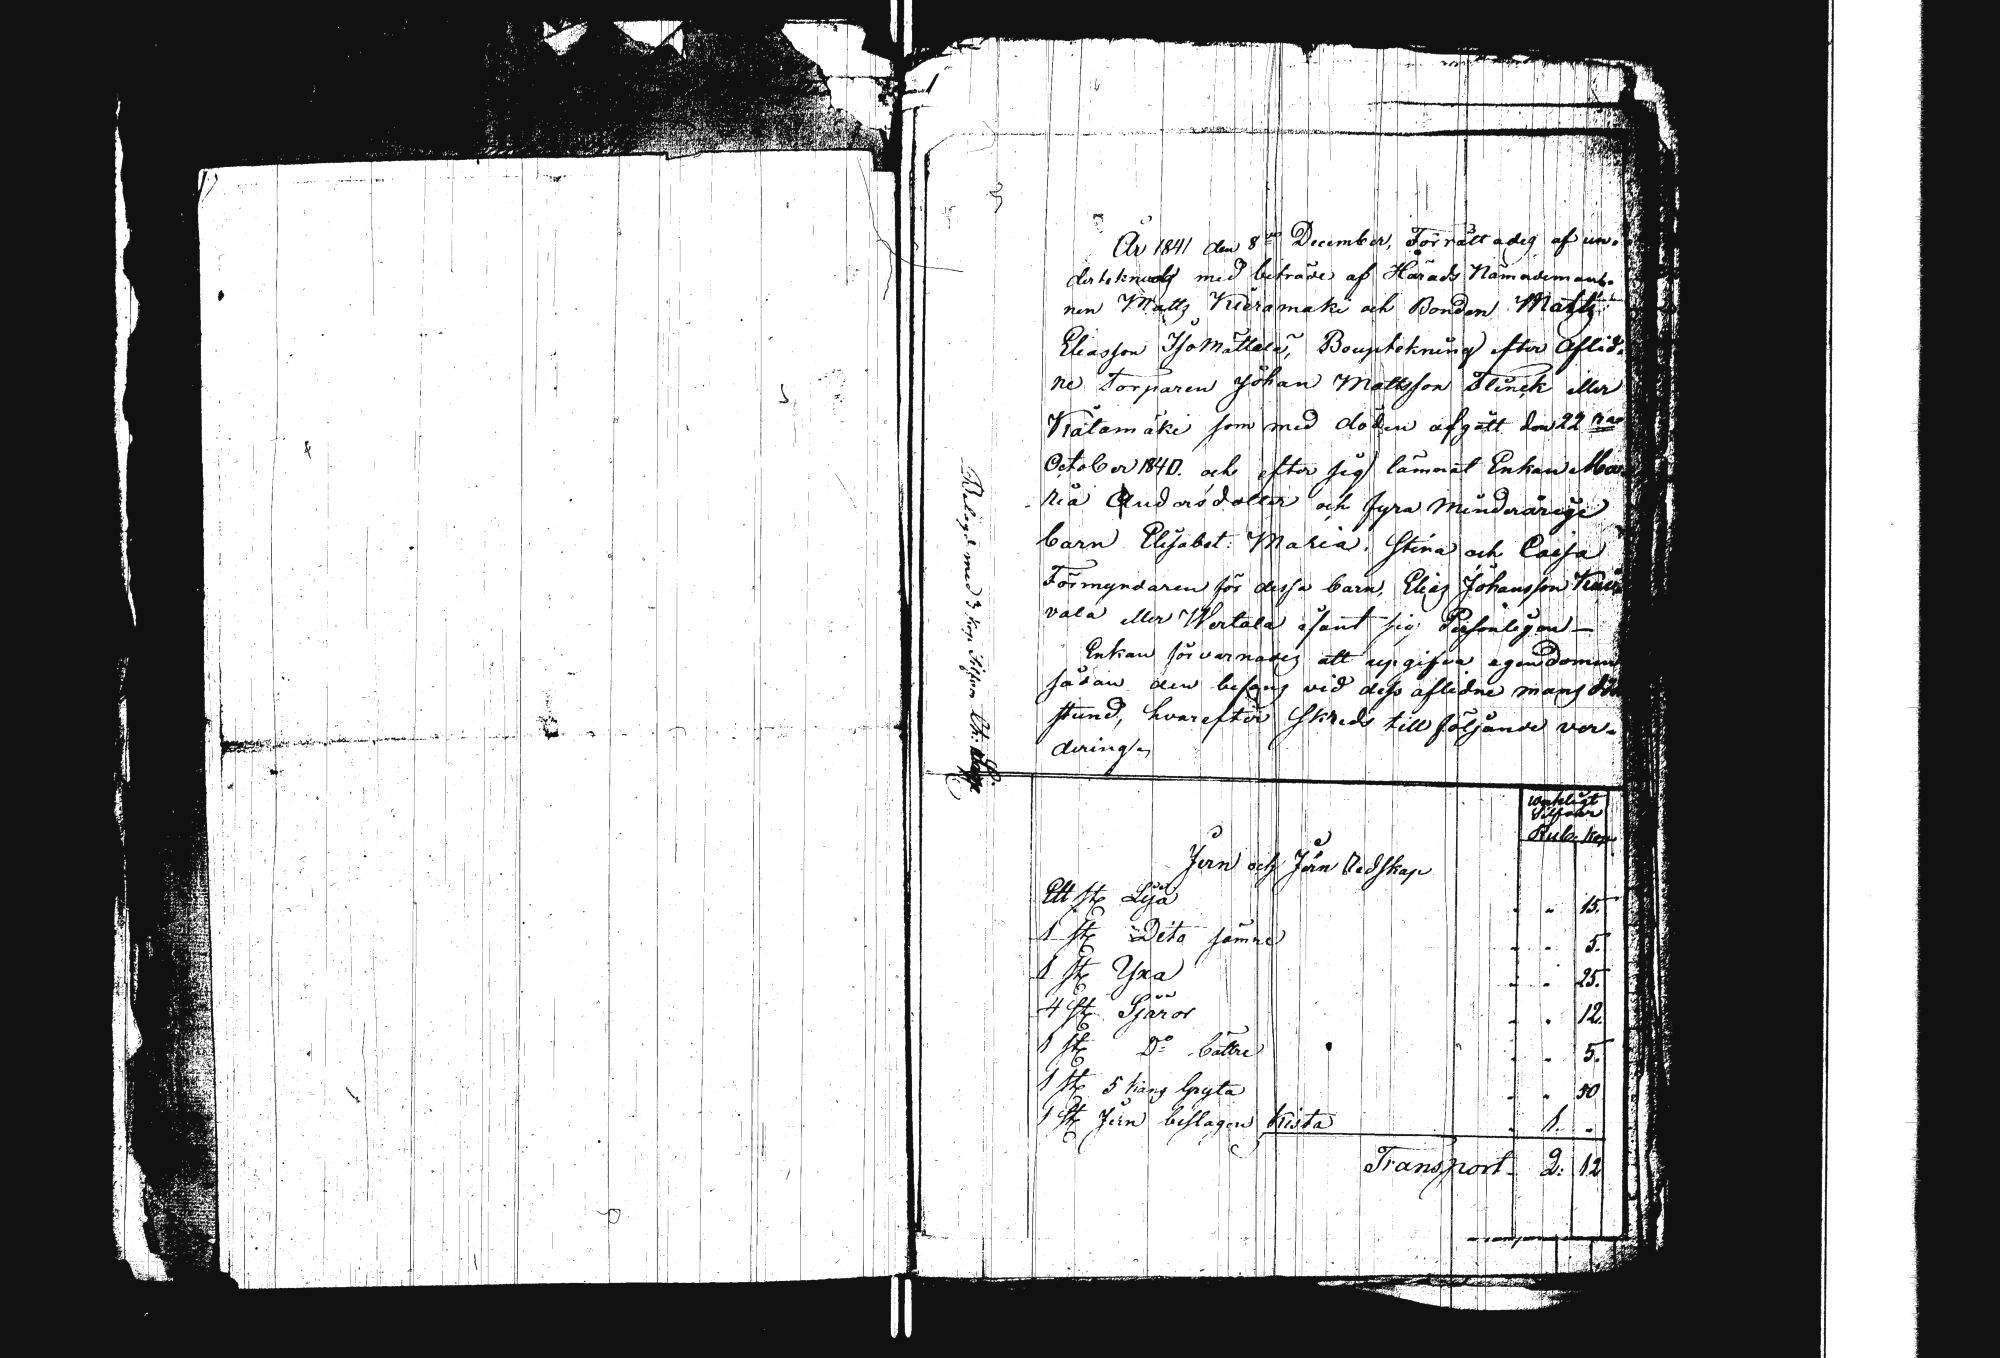 År 1841 den 8de December, Förrättades af un-
dertecknad med beträde af Härads Nämndeman-
nen Matts Kieramäki och Bonden Matts
Eliasson Isomättälä, Bouptekning efter Aflid-
ne Torparen Johan Mattsson Flinck eller
Kätämäki som med döden afgått den 22
October 1840. och efter sig lämnat Enkan Ma-
ria Andersdotter och fyra Minderårige
barn Elisabet. Maria. Stina och Caisa
Förmyndaren för dessa barn, Elias Johansson
vala eller Wertala Personligen —
Enkan förvarnades att upgifva egendomen
sådan den befans vid dess aflidne mans
stund, hvarefter Skreds till följande ver-
dering
Belagd med 3 Kop. Silfver Ch:
werkligt
Silfver
Rub. Kop
Jern och Jern Redskap
Ett st Lija " " 15.
1 st Dito sämre " " 5.
1 st Yxa " " 25.
4 st Skäror " " 12.
1 st Do bättre " " 5.
1 st 5 kans Gryta " " 50
1 st Jern beslagen Kista " 1. "
Transport 2: 12